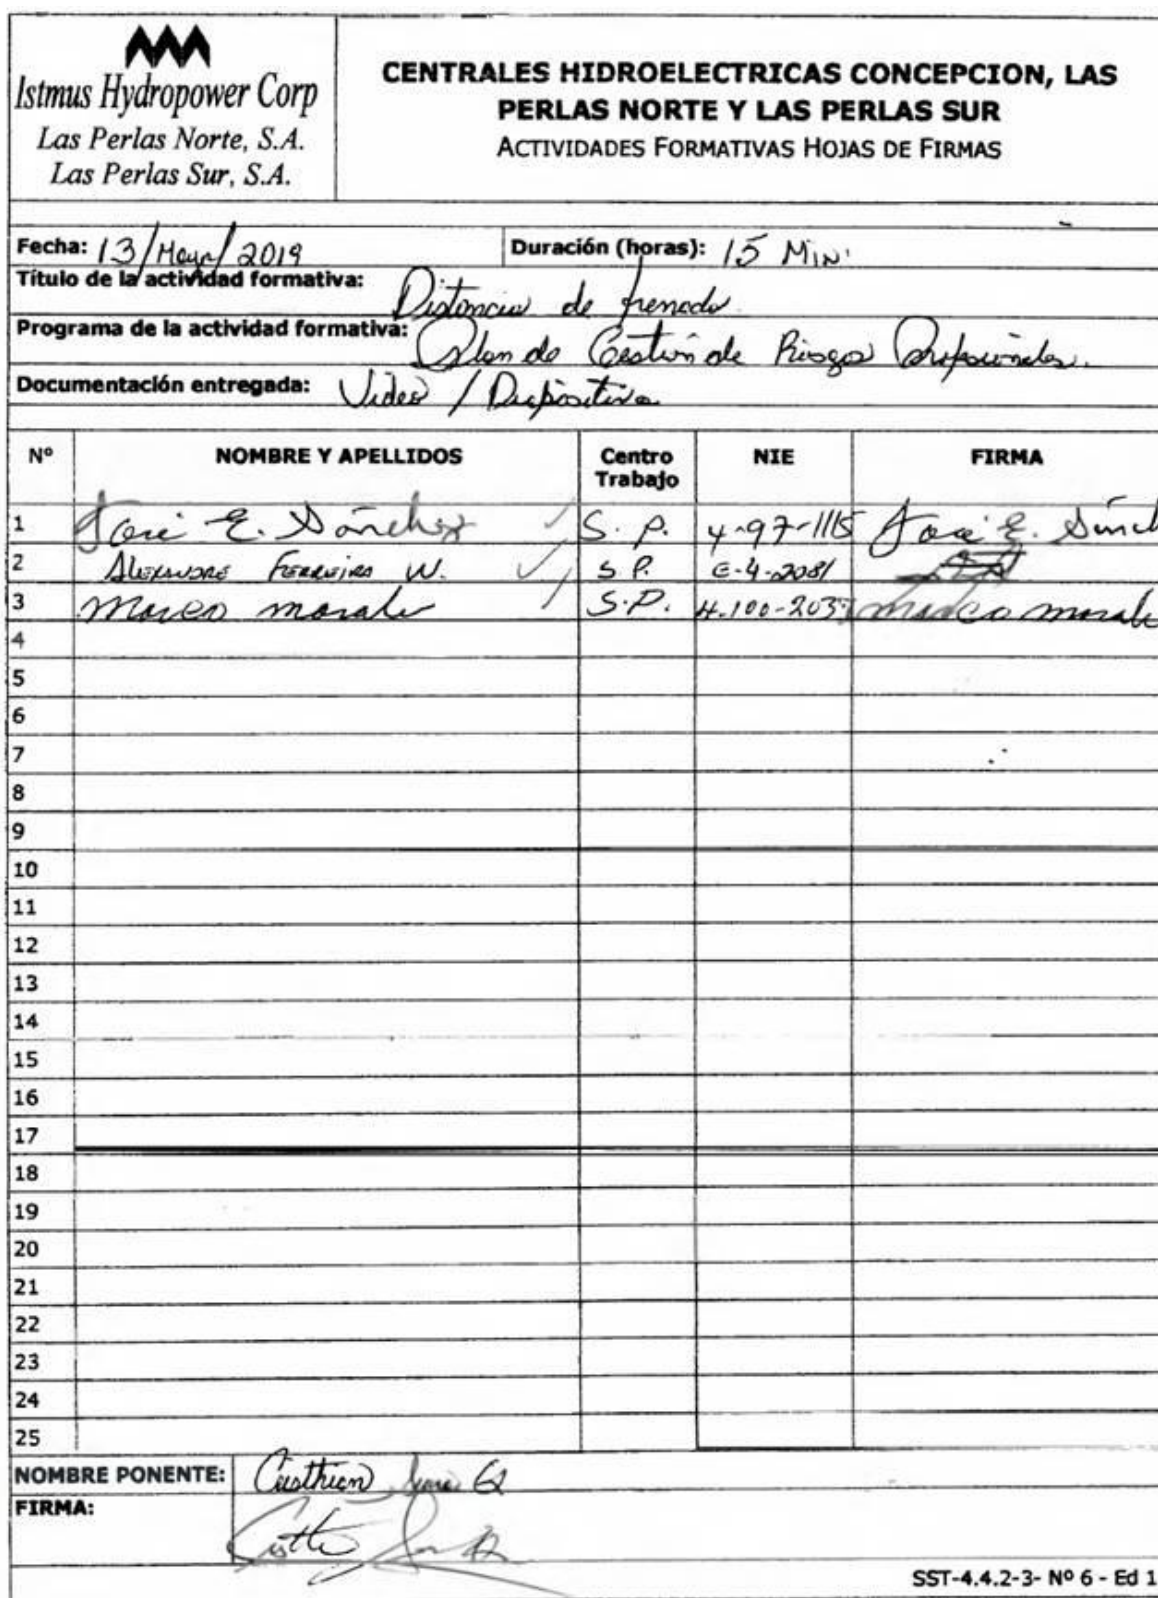 Istmus Hydropower Corp
Las Perlas Norte, S.A.
Las Perlas Sur, S.A.
CENTRALES HIDROELECTRICAS CONCEPCION, LAS
PERLAS NORTE Y LAS PERLAS SUR
ACTIVIDADES FORMATIVAS HOJAS DE FIRMAS
Fecha: 13/Mayo/2019 Duración (horas): 15 Min.
Título de la actividad formativa: Distancia de frenado
Programa de la actividad formativa: Plan de Gestión de Riesgos Profesionales.
Documentación entregada: Video / Diapositiva
Nº NOMBRE Y APELLIDOS Centro Trabajo NIE FIRMA
1 José E. Sánchez S. P. 4-97-1115 José E. Sánch
2 ALEXANDRE FERREIRA W. S P. E-4-2081
3 Marco morale S.P. 4-100-203 Marco morale
4
5
6
7
8
9
10
11
12
13
14
15
16
17
18
19
20
21
22
23
24
25
NOMBRE PONENTE:
FIRMA:
SST-4.4.2-3- Nº 6 - Ed 1